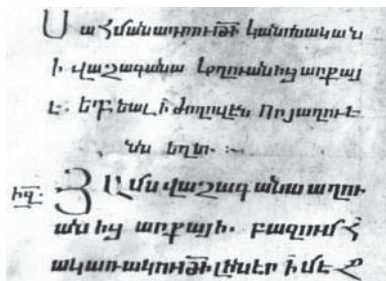 Սահմանադրութի կանոնական
ի վաչագանա Աղուանից արքայ
է. եդեալ ի ժողովէն որ յաղուէ
նն եղև. :~
ԻԶ: ՅԱմս վաչագանա աղու
անից արքայի. բազում հ
ակառակութի լինէր ի մէջ